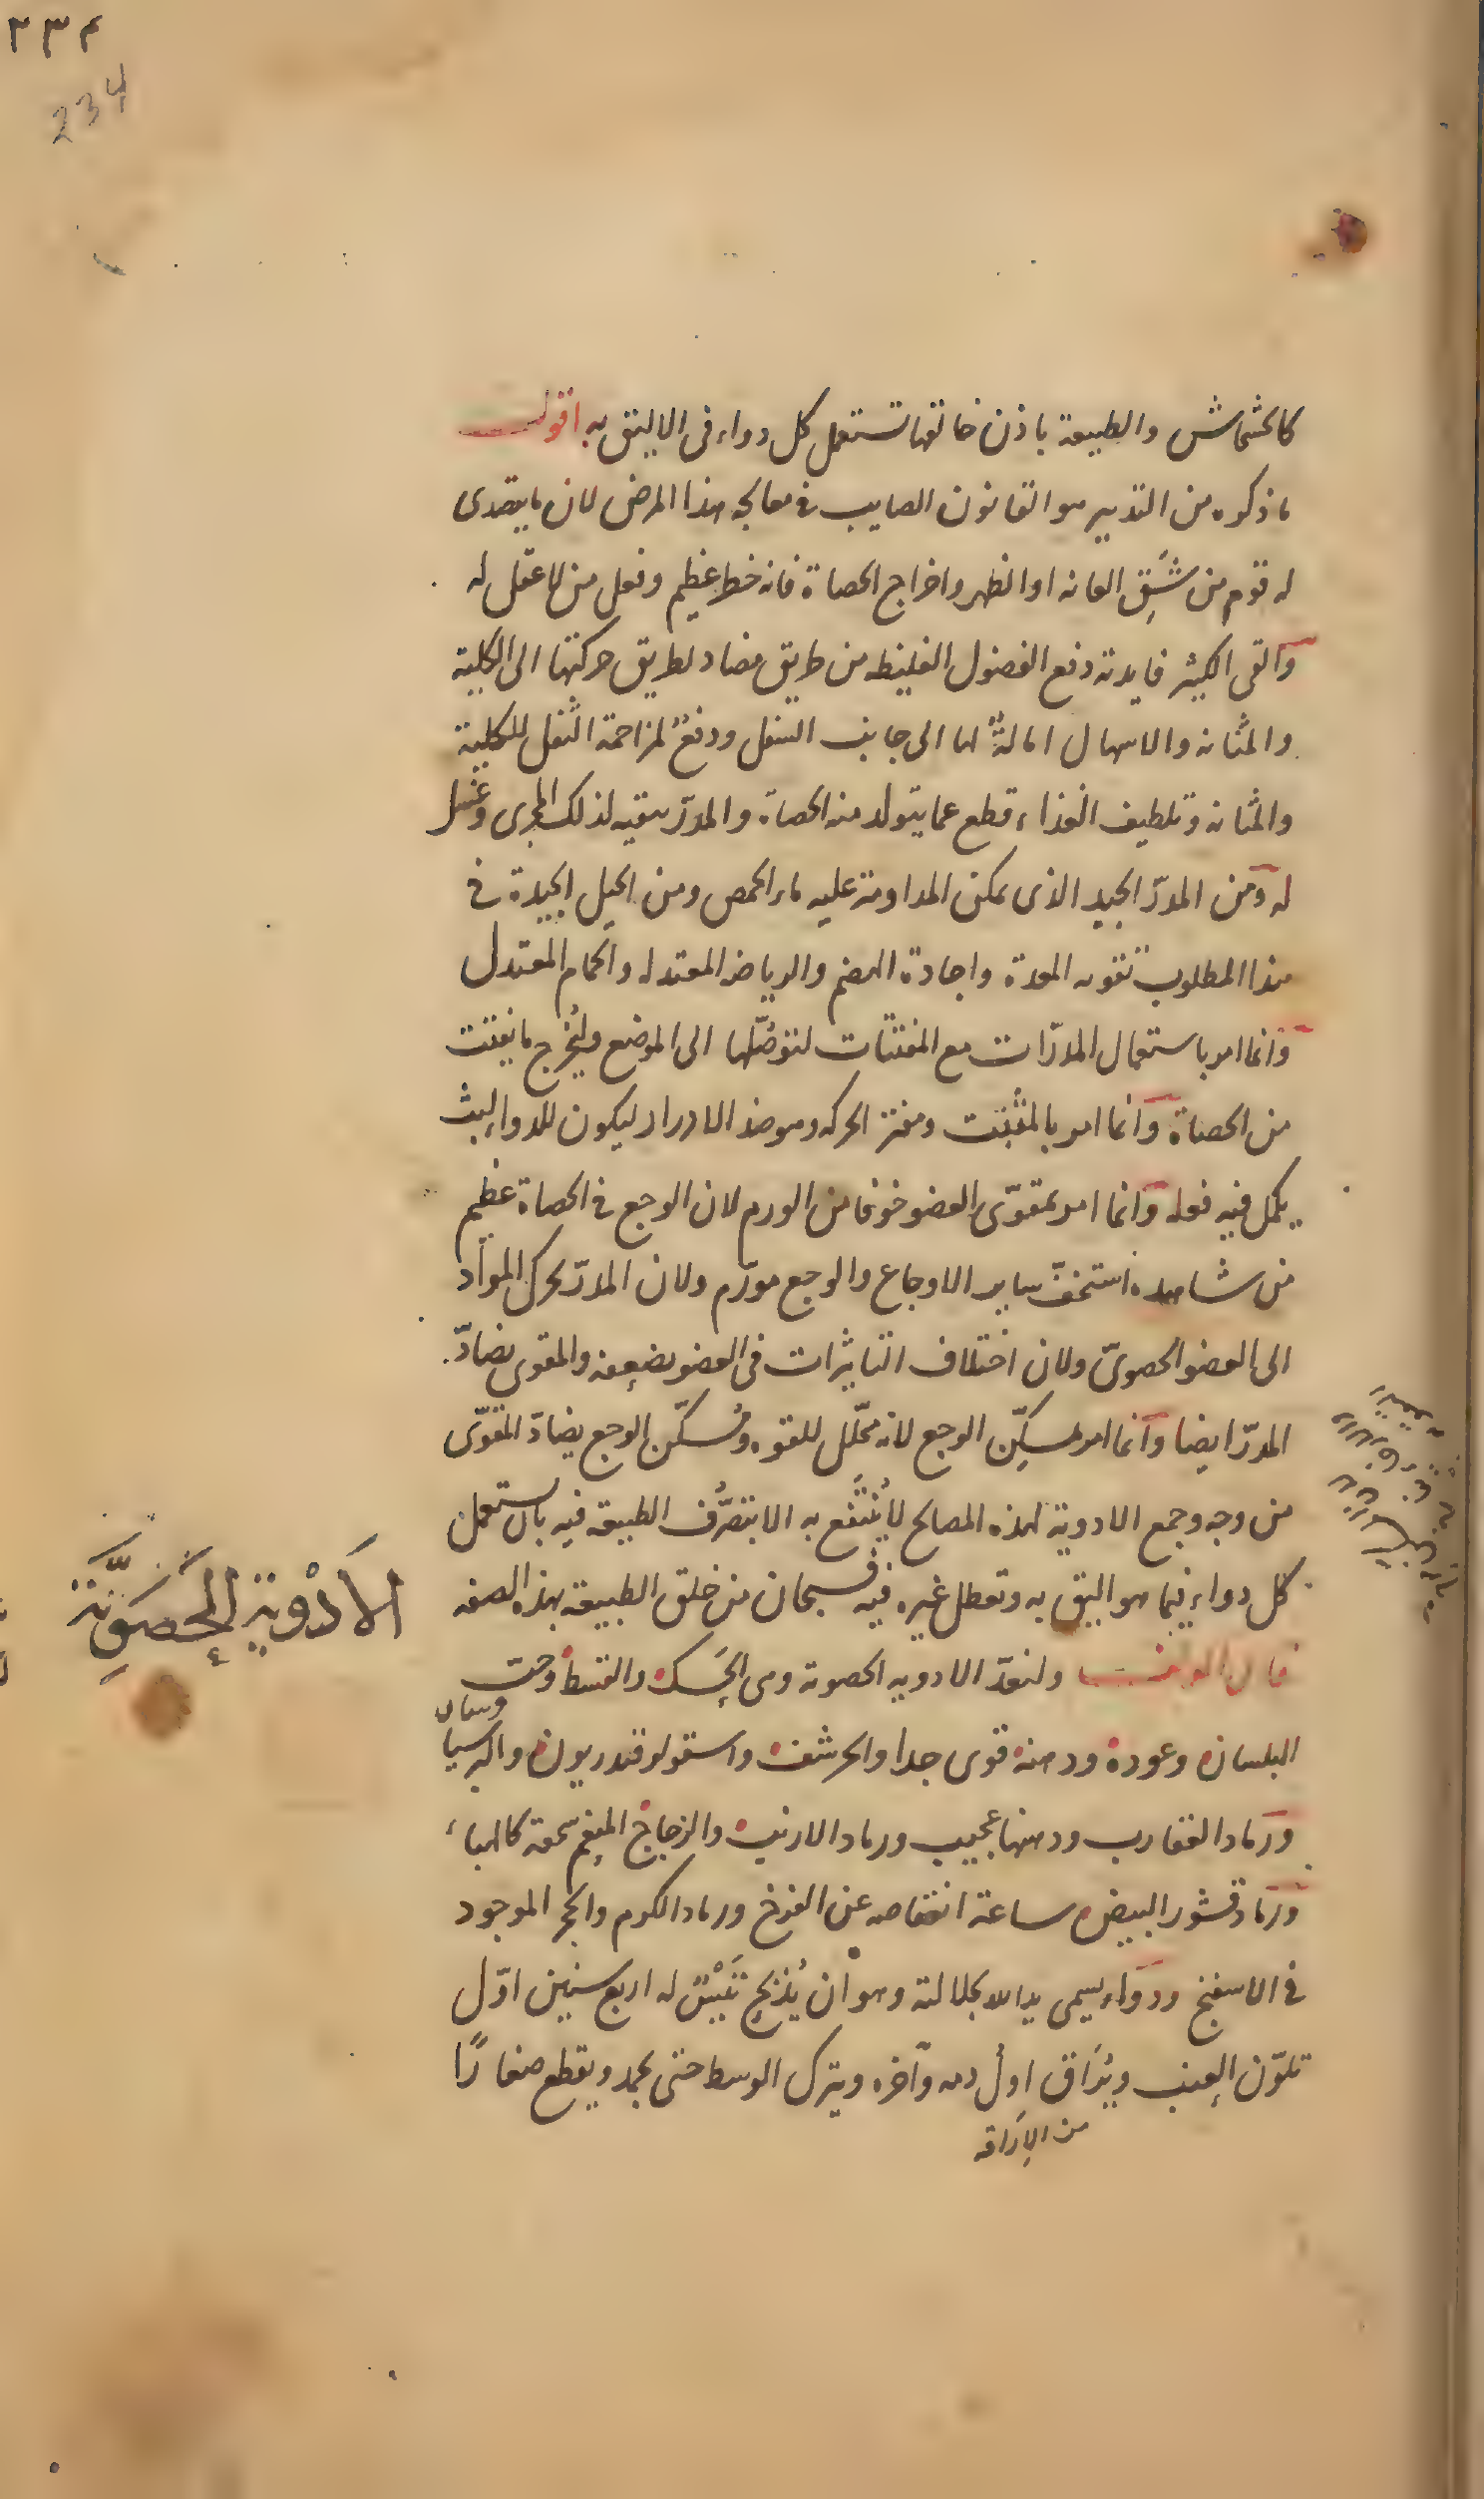 ٢٣٤
234
كالخشخاش والطبيعة باذن خالقها تستعمل كل دواء فى الاليق به اقول
ما ذكره من التدبير هو القانون الصايب فى معالجه هذا المرض لان ما يتصدى
له قوم من شَقِّ العانه او الظهر واخراج الحصاة فانه خطر عظيم وفعل من لا عقل له
والقى الكثير فايدته دفع الفضول الغليظه من طريق مضاد لطريق حركتها الى الكلية
والمثانه والاسهال امالةٌ لها الى جانب السفل ودفعٌ لمزاحمة الثفل للكلية
والمثانه وتلطيف الغذاء قطع عما يتولد منه الحصاة والمدرّ تنقيه لذلك المجرى وغسل
له ومن المدرّ الجيد الذى يمكن المداومة عليه ماء الحمص ومن الحيل الجيدة فى
هذا المطلوب تقويه المعدة واجادة الهضم والرياضه المعتدله والحمام المعتدل
وانما امر باستعمال المدرّات مع المفتتات لتوصّلها الى الموضع وليُخرج ما يفتت
من الحصاة وانما امر بالمثبّت ومفتر الحركه وهو ضد الادرار ليكون للدواء لبث
يكمل فيه فعله وانما امر بمقوّى العضو خوفا من الورم لان الوجع فى الحصاة عظيم
من شاهده استخفّ ساير الاوجاع والوجع مورّم ولان المدرّ يحرك المواد
الى العضو الحصوىّ ولان اختلاف التاثيرات فى العضو يضعفه والمقوى يضادّ
المدرّ ايضا وانما امر بمسكّن الوجع لانه محلّل للقوه ومُسكّن الوجع يضادّ المقوّى
من وجه وجمع الادوية لهذه المصالح لا يُنتَفع به الا بتصرُّف الطبيعة فيه بان يستعمل
كل دواء فيما هو اليق به وتعطل غيره فيه فسبحان من خلق الطبيعه بهذه الصفه
الاَدْوية الحَصَوِيَّة
قال المولف ولنعدّ الادويه الحصوية وهى الحَسَك والقسط وحب
البلسان وعوده ودهنه قوى جدا والحرشف واسقولوقندريون والبرسيا
وسان
ورماد العقارب ودهنها عجيب ورماد الارنب والزجاج المنعّم سحقه كالهباء
ورماد قشور البيض ساعة انفقاصه عن الفرخ ورماد الكرم والحجر الموجود
فى الاسفنج ودواء يسمى يد الله بجلالته وهو ان يُذبح تَيْسٌ له اربع سنين اوّل
تلوّن العنب ويُرَاق اولُ دمه وآخره ويترك الوسط حتى يجمد ويقطع صغارًا
من الاراقه